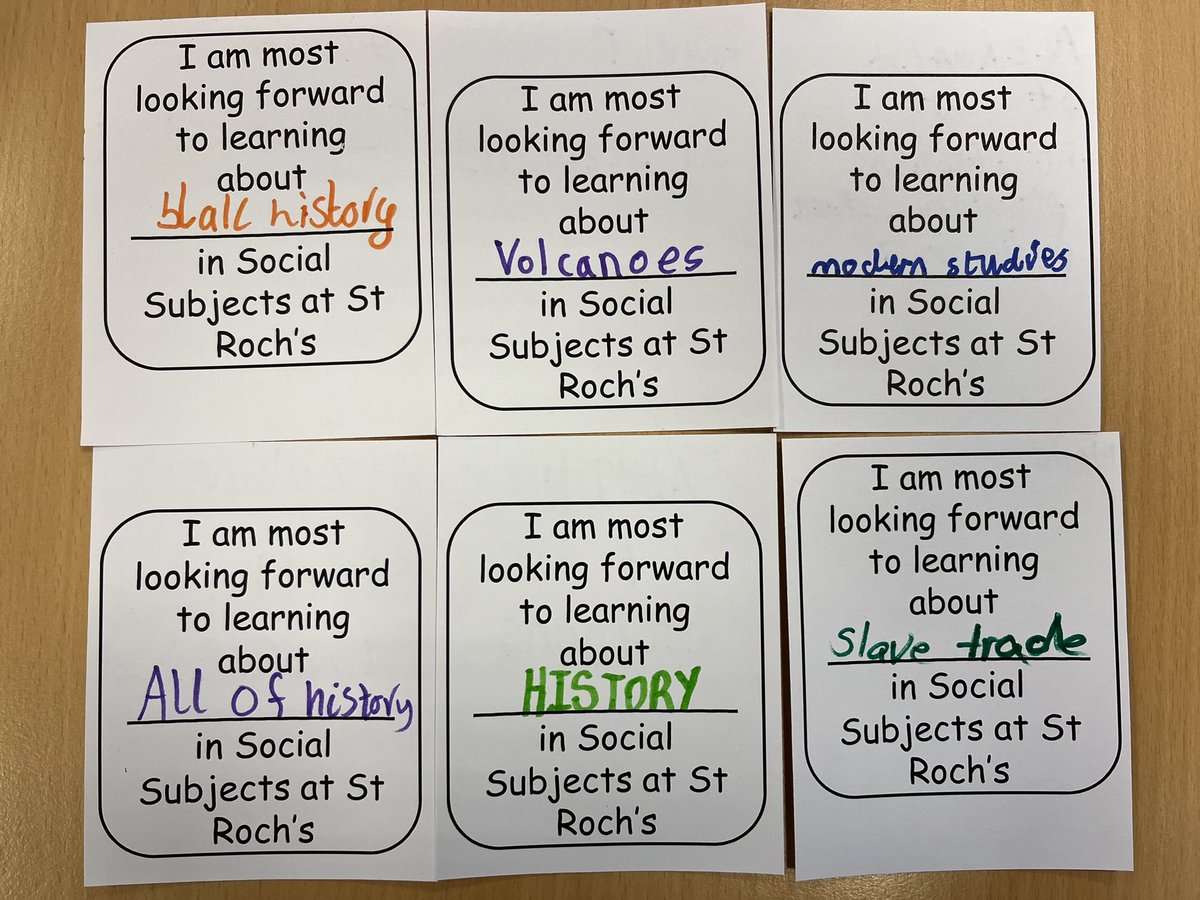 I am most
looking forward
to learning
about
blalc history
in Social
Subjects at St
Roch's
I am most
looking forward
to learning
about
Volcanoes
in Social
Subjects at St
Roch's
I am most
looking forward
to learning
about
modern studies
in Social
Subjects at St
Roch's
I am most
looking forward
to learning
about
All of history
in Social
Subjects at St
Roch's
I am most
looking forward
to learning
about
HISTORY
in Social
Subjects at St
Roch's
I am most
looking forward
to learning
about
Slave trade
in Social
Subjects at St
Roch's